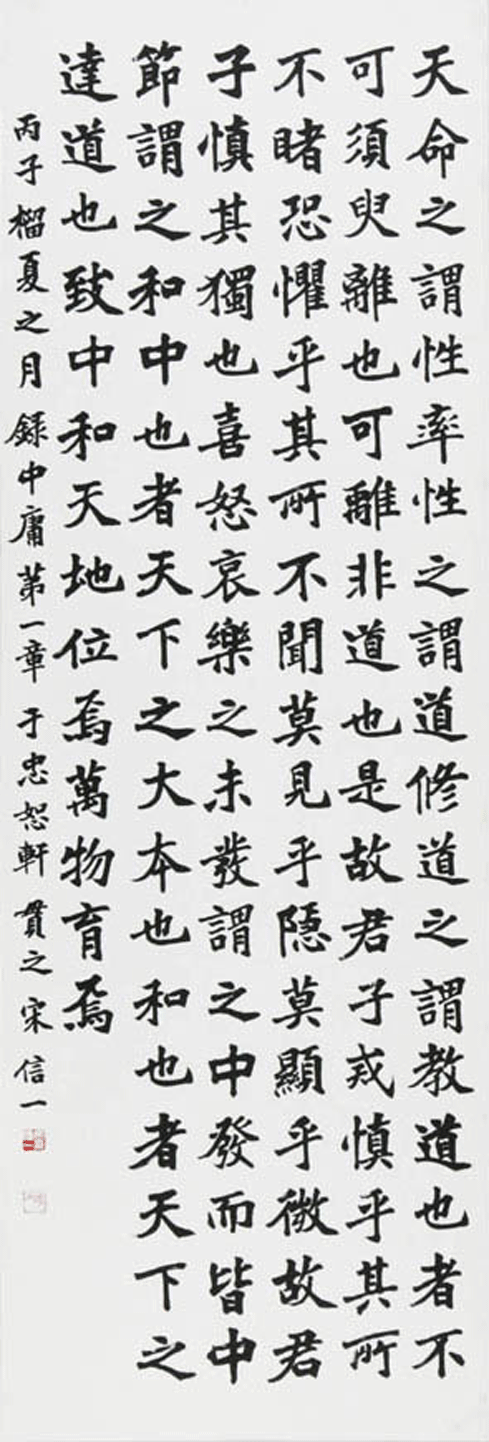 天命之謂性率性之謂道修道之謂教道也者不
可須臾離也可離非道也是故君子戒慎乎其所
不睹恐懼乎其所不聞莫見乎隱莫顯乎微故君
子慎其獨也喜怒哀樂之未發謂之中發而皆中
節謂之和中也者天下之大本也和也者天下之
達道也致中和天地位焉萬物育焉
丙子榴夏之月錄中庸第一章于忠恕軒貫之宋信一